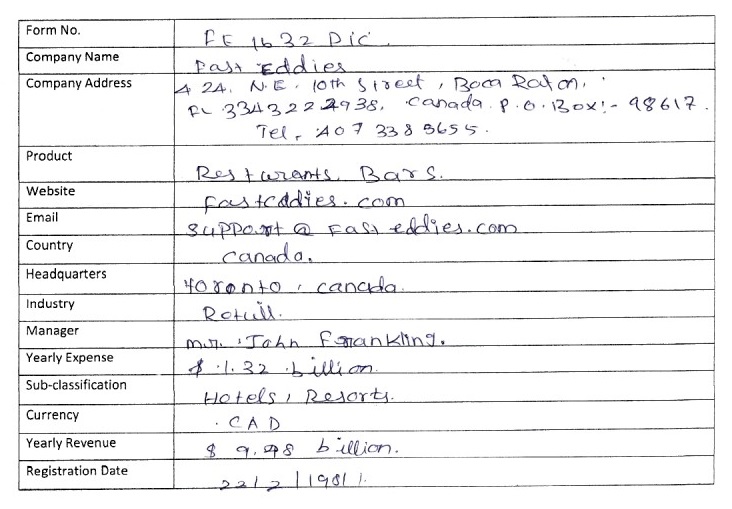 Form No. FE 1632 Dic.
Company Name Fast Eddies
Company Address 424. N.E. 10th Street, Boca Raton,
FL 334322 2938, Canada. P.O.Box:- 98617.
Tel. 407 338 3655.
Product Resturants, Bars.
Website fasteddies.com
Email Support @ Fast eddies.com
Country Canada.
Headquarters Toronto, canada.
Industry Retail.
Manager Mr. John Frankling.
Yearly Expense $ 1.32 billion
Sub-classification Hotels, Resorts.
Currency CAD
Yearly Revenue $ 9.98 billion.
Registration Date 22/2/1981.